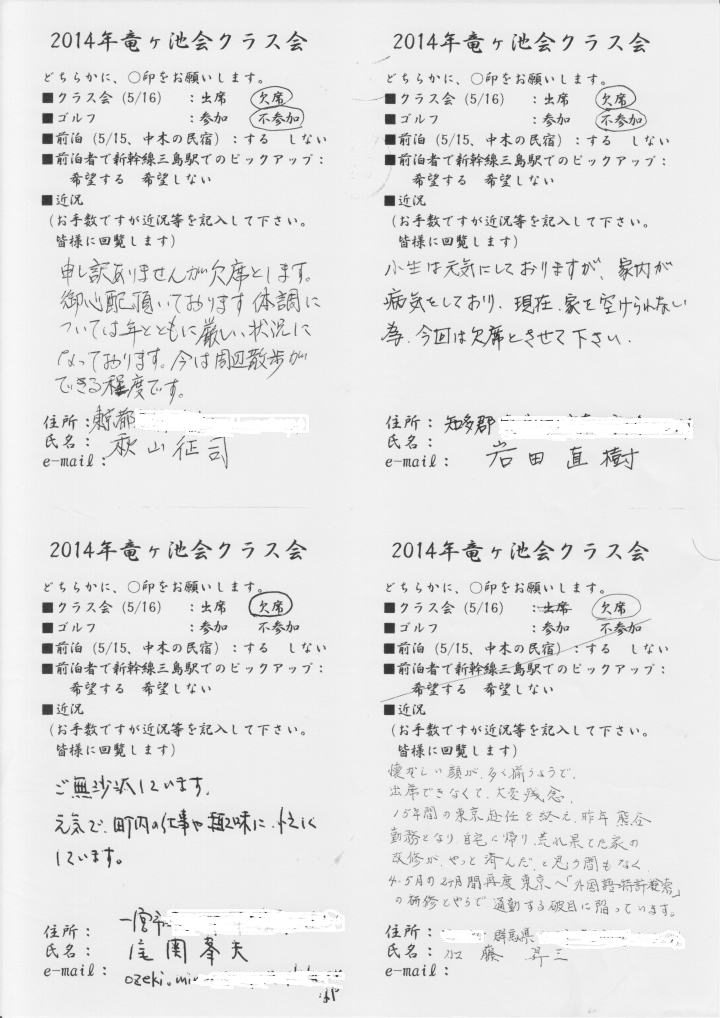 2014年竜ヶ池会クラス会
どちらかに、〇印をお願いします。
■クラス会 (5/16) ：出席 欠席
■ゴルフ ：参加 不参加
■前泊 (5/15、中木の民宿)：する しない
■前泊者で新幹線三島駅でのピックアップ：
希望する 希望しない
■近況
(お手数ですが近況等を記入して下さい。
皆様に回覧します)
申し訳ありませんが欠席とします。
御心配頂いております体調に
ついては年とともに厳しい状況に
なっております。今は周辺散歩が
できる程度です。
住所：東京都
氏名：秋山征司
e-mail：
2014年竜ヶ池会クラス会
どちらかに、〇印をお願いします。
■クラス会 (5/16) ：出席 欠席
■ゴルフ ：参加 不参加
■前泊 (5/15、中木の民宿)：する しない
■前泊者で新幹線三島駅でのピックアップ：
希望する 希望しない
■近況
(お手数ですが近況等を記入して下さい。
皆様に回覧します)
小生は元気にしておりますが、家内が
病気をしており、現在、家を空けられない
為、今回は欠席とさせて下さい.
住所：知多郡
氏名：岩田直樹
e-mail：
2014年竜ヶ池会クラス会
どちらかに、〇印をお願いします。
■クラス会 (5/16) ：出席 欠席
■ゴルフ ：参加 不参加
■前泊 (5/15、中木の民宿)：する しない
■前泊者で新幹線三島駅でのピックアップ：
希望する 希望しない
■近況
(お手数ですが近況等を記入して下さい。
皆様に回覧します)
ご無沙汰しています.
元気で、町内の仕事や趣味に、忙しく
しています。
住所：一宮市
氏名：尾関峯夫
e-mail：ozeki.mi
2014年竜ヶ池会クラス会
どちらかに、〇印をお願いします。
■クラス会 (5/16) ：出席 欠席
■ゴルフ ：参加 不参加
■前泊 (5/15、中木の民宿)：する しない
■前泊者で新幹線三島駅でのピックアップ：
希望する 希望しない
■近況
(お手数ですが近況等を記入して下さい。
皆様に回覧します)
懐かしい顔が、多く揃うようで、
出席できなくて、大変残念.
15年間の東京赴任を終え、昨年熊谷
勤務となり、自宅に帰り、荒れ果てた家の
改修が、やっと済んだ、と思う間もなく
4.5月の2ヶ月間再度東京へ「外国語特許検索」
の研修とやらで通勤する破目に陥っています。
住所：群馬県
氏名：加藤昇三
e-mail：